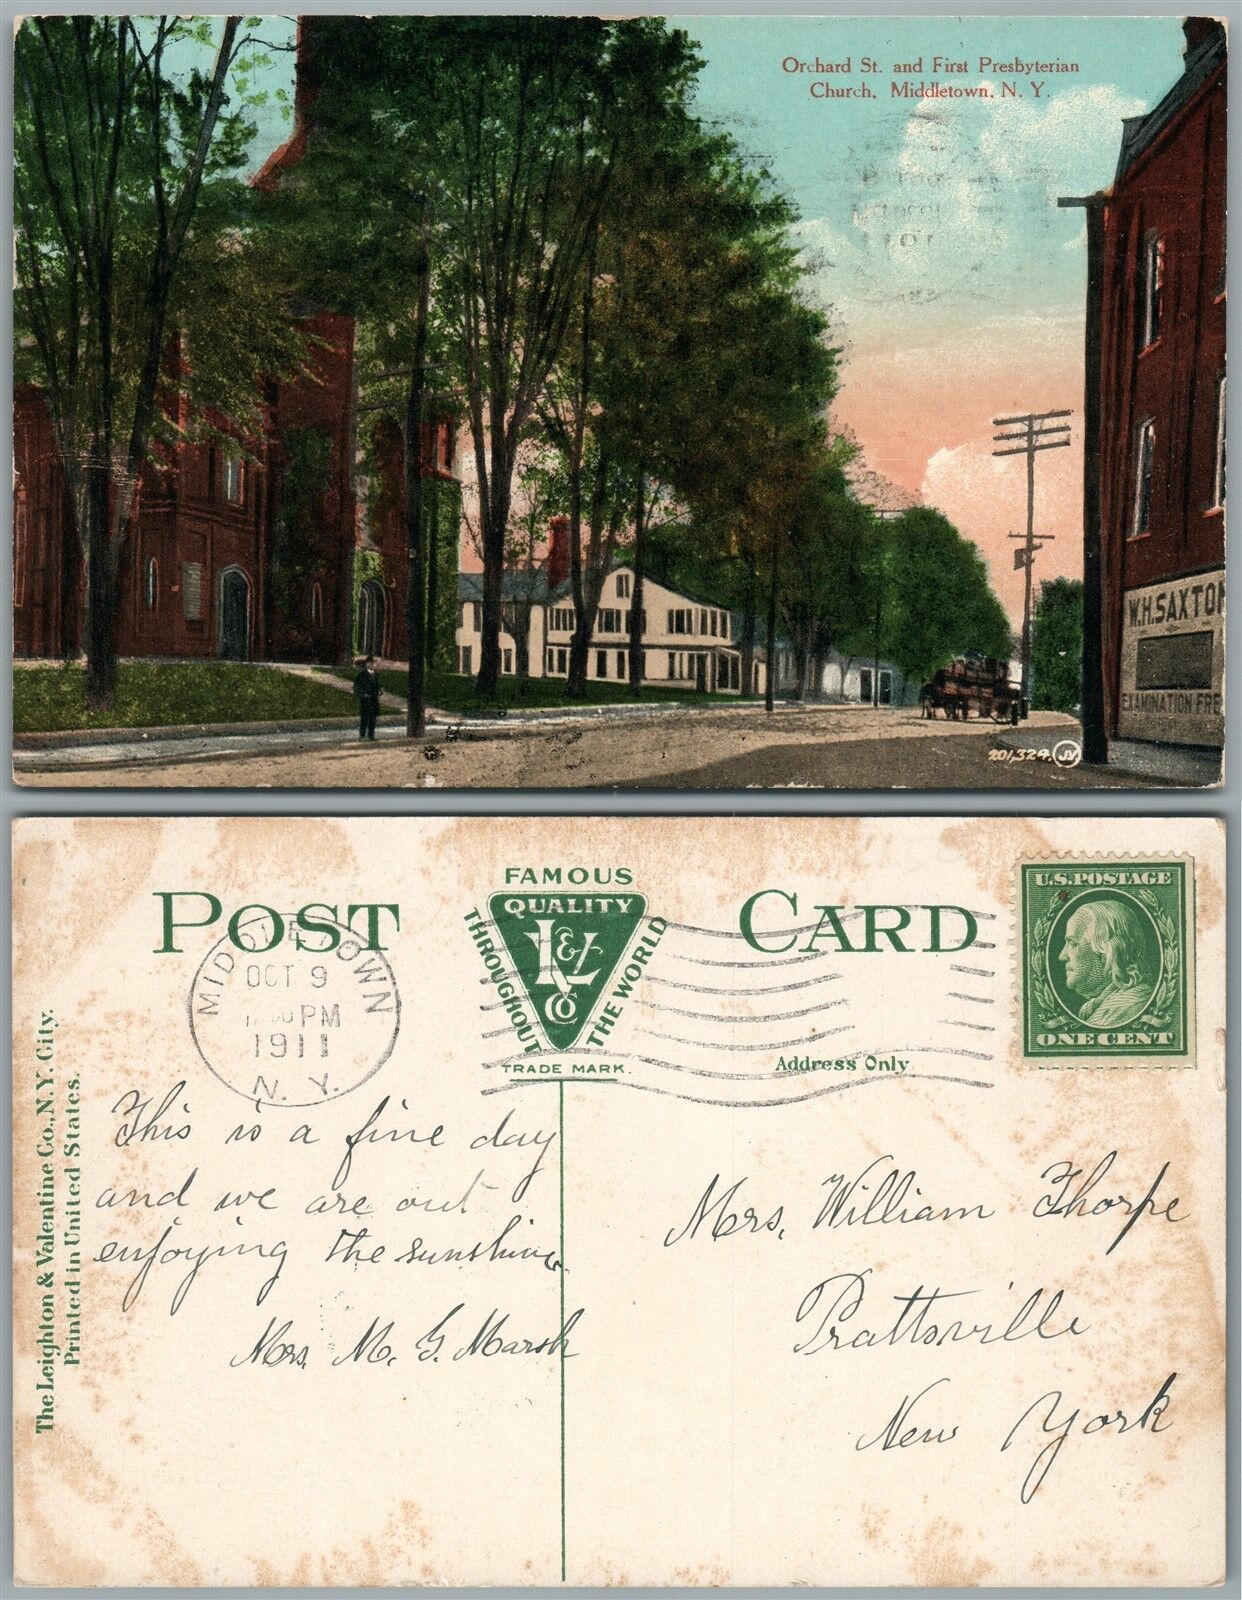 Orchard St. and First Presbyterian
Church, Middletown, N. Y.
W.H.SAXTON
EXAMINATION FRE
201,324. JV
POST CARD
FAMOUS
QUALITY
THROUGHOUT
THE WORLD
L&V
Co
TRADE MARK.
U.S.POSTAGE
ONE CENT
MIDDLETOWN
OCT 9
PM
1911
N. Y.
Address Only
The Leighton & Valentine Co., N.Y. City.
Printed in United States.
This is a fine day
and we are out
enjoying the sunshine
Mrs. M. G. Marsh
Mrs. William Thorpe
Prattsville
New York